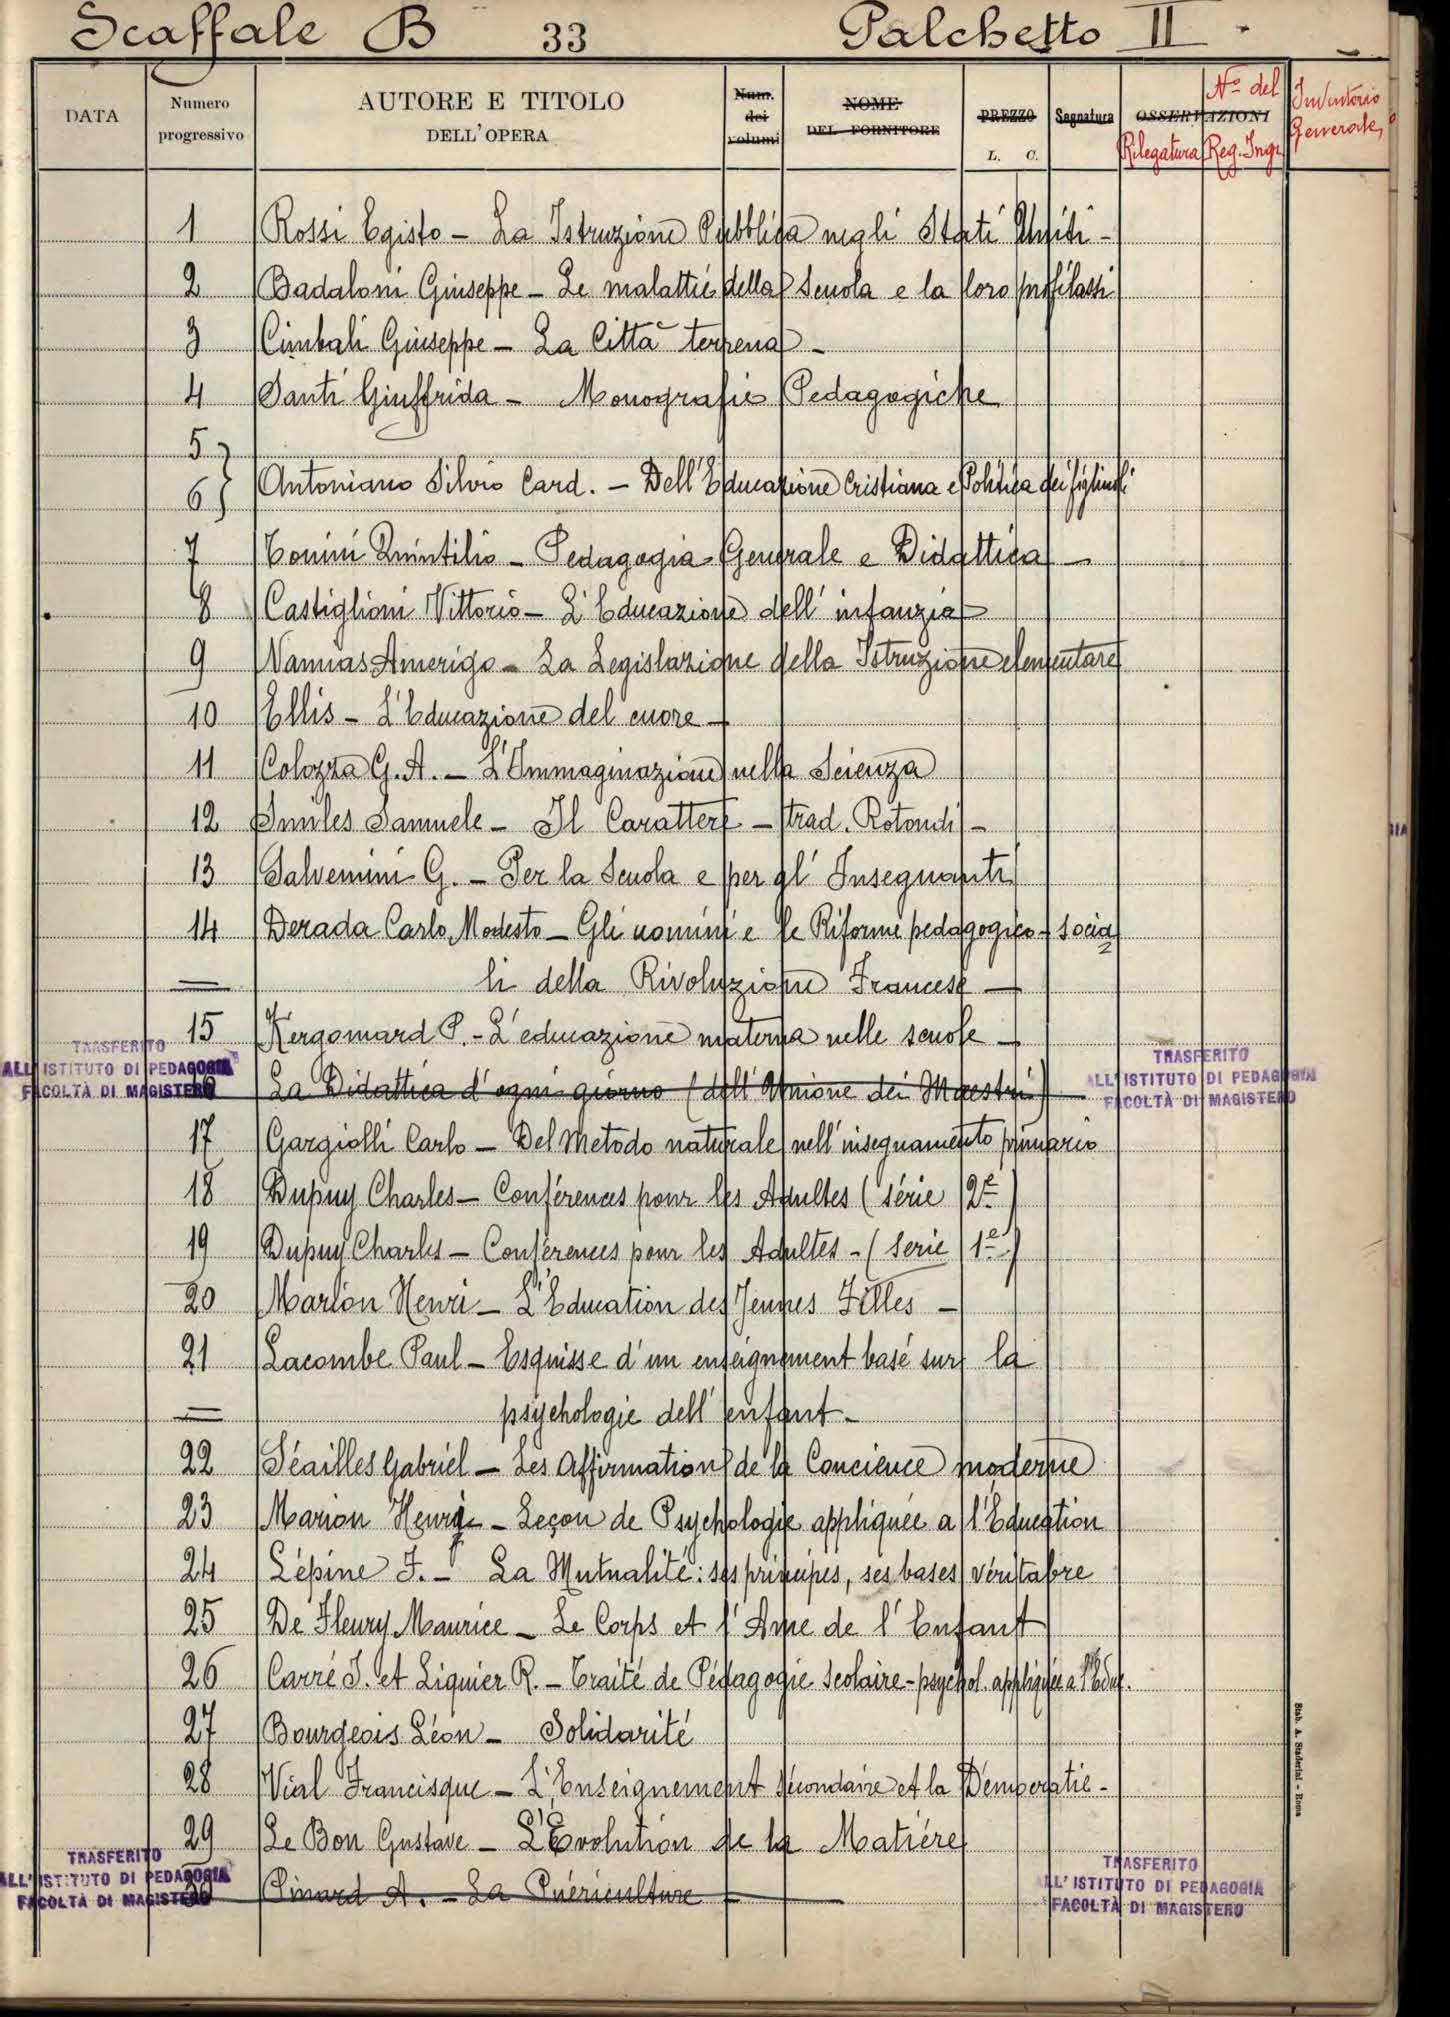 Scaffale B 33 Palchetto II.
DATA Numero progressivo AUTORE E TITOLO DELL'OPERA Num. dei volumi NOME DEL FORNITORE PREZZO L. C. Segnatura OSSERVAZIONI Rilegatura No del Reg. Ingr. Inventario Generale,
1 Rossi Egisto - La Istruzione Pubblica negli Stati Uniti -
2 Badaloni Giuseppe - Le malattie della Scuola e la loro profilassi
3 Cimbali Giuseppe - La Città terrena -
4 Santi Giuffrida - Monografie Pedagogiche
5
6 } Antoniano Silvio Card. - Dell'Educazione Cristiana e Politica dei figliuoli
7 Tonini Quintilio - Pedagogia Generale e Didattica -
8 Castiglioni Vittorio - L'Educazione dell'infanzia
9 Namias Amerigo - La Legislazione della Istruzione elementare
10 Ellis - L'Educazione del cuore -
11 Colozza G. A. - L'Immaginazione nella Scienza
12 Smiles Samuele - Il Carattere - trad. Rotondi -
13 Salvemini G. - Per la Scuola e per gl'Insegnanti
14 Derada Carlo Modesto - Gli uomini e le Riforme pedagogico-socia
= li della Rivoluzione Francese -
15 Kergomard P. - L'educazione materna nelle scuole -
TRASFERITO
ALL'ISTITUTO DI PEDAGOGIA
FACOLTÀ DI MAGISTERO
16 La Didattica d'ogni giorno (dell'Unione dei Maestri)
TRASFERITO
ALL'ISTITUTO DI PEDAGOGIA
FACOLTÀ DI MAGISTERO
17 Gargiolli Carlo - Del Metodo naturale nell'insegnamento primario
18 Dupuy Charles - Conférences pour les Adultes (série 2e)
19 Dupuy Charles - Conférences pour les Adultes - (serie 1e)
20 Marion Henri - L'Education des Jeunes Filles -
21 Lacombe Paul - Esquisse d'un enseignement basé sur la
= psychologie dell'enfant -
22 Séailles Gabriel - Les Affirmation de la Concience moderne
23 Marion Henri - Leçon de Psychologie appliquée a l'Éducation
24 Lépine F. - La Mutualité: ses principes, ses bases véritabre
25 De Fleury Maurice - Le Corps et l'Ame de l'Enfant
26 Carré I. et Liquier R. - Traité de Pédagogie scolaire - psychol. appliquée a l'Educ.
27 Bourgeois Léon - Solidarité
28 Vial Francisque - L'Enseignement sécondaire et la Démocratie -
29 Le Bon Gustave - L'Evolution de la Matiére
TRASFERITO
ALL'ISTITUTO DI PEDAGOGIA
FACOLTÀ DI MAGISTERO
30 Pinard A. - La Puériculture -
TRASFERITO
ALL'ISTITUTO DI PEDAGOGIA
FACOLTÀ DI MAGISTERO
Stab. A. Staderini - Roma